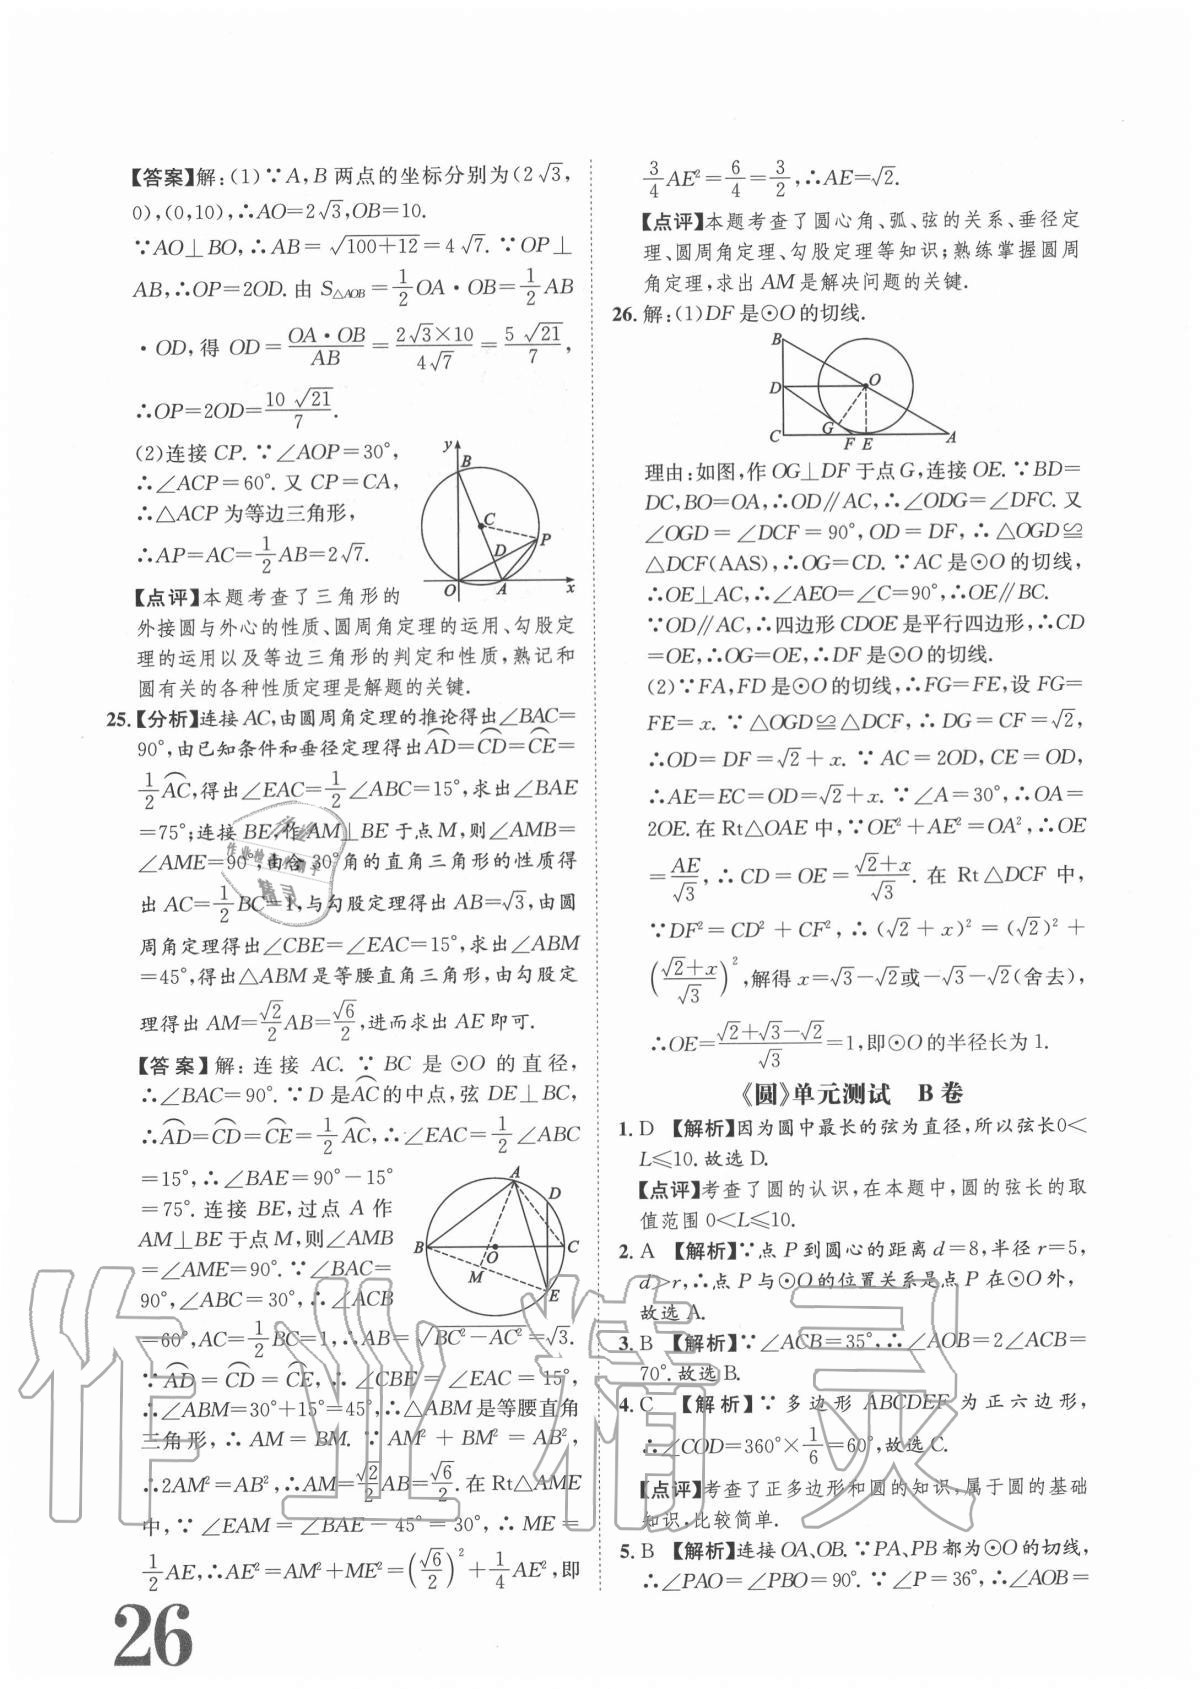 【答案】解:(1)∵A,B两点的坐标分别为(2√3,
0),(0,10),∴AO=2√3,OB=10.
∵AO⊥BO,∴AB=√(100+12)=4√7. ∵OP⊥
AB,∴OP=2OD.由 S△AOB=1/2 OA·OB=1/2 AB
·OD,得 OD=(OA·OB)/AB=(2√3×10)/(4√7)=(5√21)/7,
∴OP=2OD=(10√21)/7.
(2)连接 CP. ∵∠AOP=30°,
∴∠ACP=60°.又 CP=CA,
∴△ACP 为等边三角形,
∴AP=AC=1/2 AB=2√7.
y
B
C
D
P
O
A
x
【点评】本题考查了三角形的
外接圆与外心的性质、圆周角定理的运用、勾股定
理的运用以及等边三角形的判定和性质,熟记和
圆有关的各种性质定理是解题的关键.
25.【分析】连接 AC,由圆周角定理的推论得出∠BAC=
90°,由已知条件和垂径定理得出⌒AD=⌒CD=⌒CE=
1/2 ⌒AC,得出∠EAC=1/2∠ABC=15°,求出∠BAE
=75°;连接 BE,作 AM⊥BE 于点 M,则∠AMB=
∠AME=90°,由含 30°角的直角三角形的性质得
出 AC=1/2 BC=1,与勾股定理得出 AB=√3,由圆
周角定理得出∠CBE=∠EAC=15°,求出∠ABM
=45°,得出△ABM 是等腰直角三角形,由勾股定
理得出 AM=√2/2 AB=√6/2,进而求出 AE 即可.
【答案】解:连接 AC. ∵BC 是⊙O 的直径,
∴∠BAC=90°. ∵D 是⌒AC的中点,弦 DE⊥BC,
∴⌒AD=⌒CD=⌒CE=1/2 ⌒AC,∴∠EAC=1/2∠ABC
=15°,∴∠BAE=90°-15°
=75°.连接 BE,过点 A 作
AM⊥BE 于点 M,则∠AMB
=∠AME=90°. ∵∠BAC=
90°,∠ABC=30°,∴∠ACB
A
D
B
O
C
M
E
=60°,AC=1/2 BC=1,∴AB=√(BC²-AC²)=√3.
∵⌒AD=⌒CD=⌒CE,∴∠CBE=∠EAC=15°,
∴∠ABM=30°+15°=45°,∴△ABM 是等腰直角
三角形,∴AM=BM. ∵AM²+BM²=AB²,
∴2AM²=AB²,∴AM=√2/2 AB=√6/2.在 Rt△AME
中,∵∠EAM=∠BAE-45°=30°,∴ME=
1/2 AE,∴AE²=AM²+ME²=(√6/2)²+1/4 AE²,即
26
3/4 AE²=6/4=3/2,∴AE=√2.
【点评】本题考查了圆心角、弧、弦的关系、垂径定
理、圆周角定理、勾股定理等知识;熟练掌握圆周
角定理,求出 AM 是解决问题的关键.
26.解:(1)DF 是⊙O 的切线.
B
D
O
G
C
F
E
A
理由:如图,作 OG⊥DF 于点 G,连接 OE. ∵BD=
DC,BO=OA,∴OD∥AC,∴∠ODG=∠DFC.又
∠OGD=∠DCF=90°,OD=DF,∴△OGD≌
△DCF(AAS),∴OG=CD. ∵AC 是⊙O 的切线,
∴OE⊥AC,∴∠AEO=∠C=90°,∴OE∥BC.
∵OD∥AC,∴四边形 CDOE 是平行四边形,∴CD
=OE,∴OG=OE,∴DF 是⊙O 的切线.
(2)∵FA,FD 是⊙O 的切线,∴FG=FE,设 FG=
FE=x. ∵△OGD≌△DCF,∴DG=CF=√2,
∴OD=DF=√2+x. ∵AC=2OD,CE=OD,
∴AE=EC=OD=√2+x. ∵∠A=30°,∴OA=
2OE.在 Rt△OAE 中,∵OE²+AE²=OA²,∴OE
=AE/√3,∴CD=OE=(√2+x)/√3.在 Rt△DCF 中,
∵DF²=CD²+CF²,∴(√2+x)²=(√2)²+
((√2+x)/√3)²,解得 x=√3-√2或-√3-√2(舍去),
∴OE=(√2+√3-√2)/√3=1,即⊙O 的半径长为 1.
《圆》单元测试 B 卷
1. D 【解析】因为圆中最长的弦为直径,所以弦长0<
L≤10.故选 D.
【点评】考查了圆的认识,在本题中,圆的弦长的取
值范围 0<L≤10.
2. A 【解析】∵点 P 到圆心的距离 d=8,半径 r=5,
d>r,∴点 P 与⊙O 的位置关系是点 P 在⊙O 外,
故选 A.
3. B 【解析】∵∠ACB=35°,∴∠AOB=2∠ACB=
70°.故选 B.
4. C 【解析】∵多边形 ABCDEF 为正六边形,
∴∠COD=360°×1/6=60°,故选 C.
【点评】考查了正多边形和圆的知识,属于圆的基础
知识,比较简单.
5. B 【解析】连接 OA、OB. ∵PA、PB 都为⊙O 的切线,
∴∠PAO=∠PBO=90°. ∵∠P=36°,∴∠AOB=
作业精灵